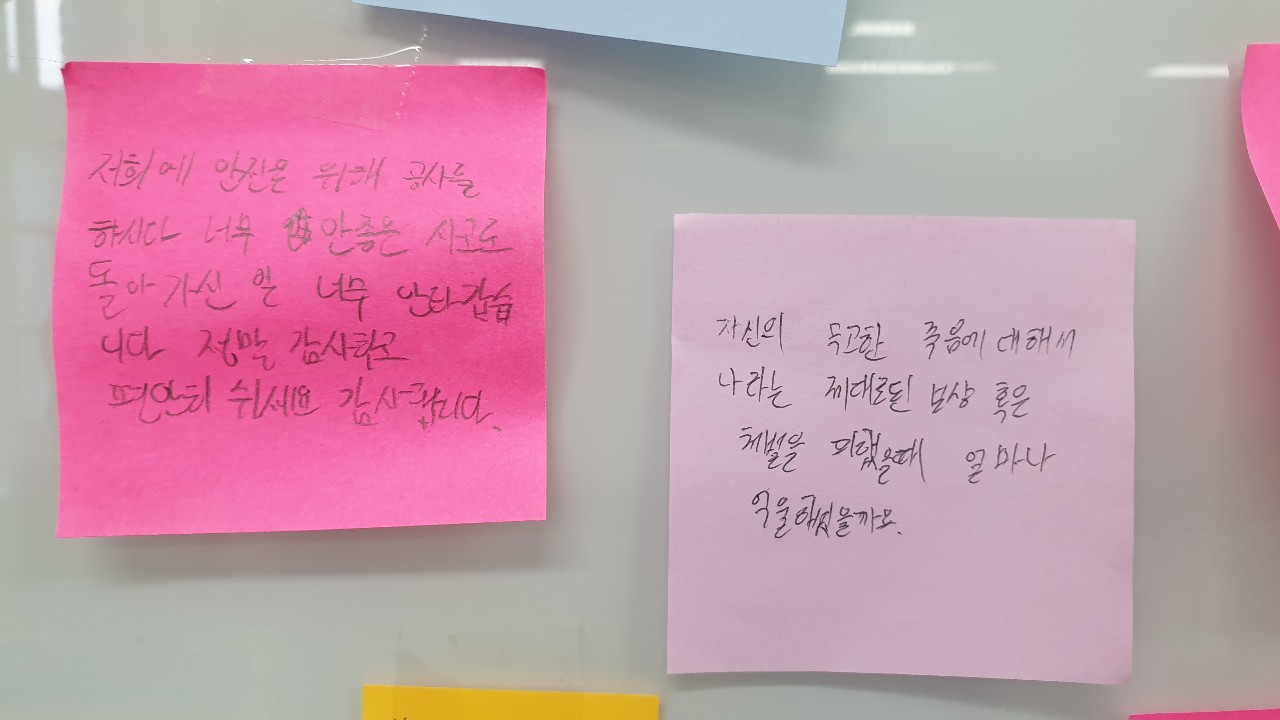 저희에 안전은 위해 공사를
하시다 너무 안좋은 사고로
돌아가신 일 너무 안타깝습
니다 정말 감사하고
편안히 쉬세요 감사합니다.
자신의 독고한 죽음에 대해서
나라는 제대로된 보상 혹은
처벌을 피했을때 얼마나
억울했을까요.